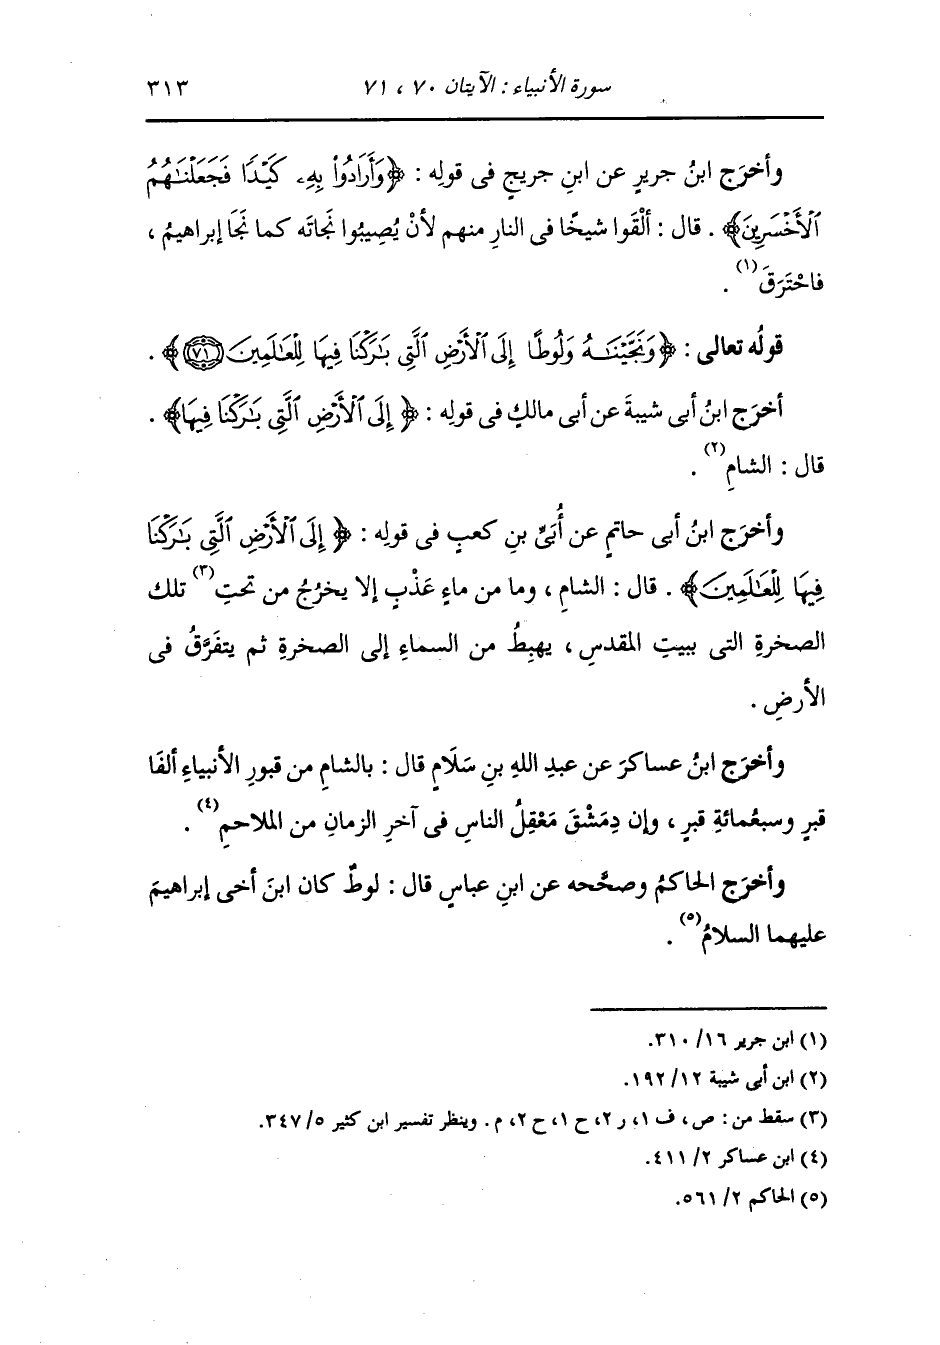 سورة الأنبياء : الآيتان ٧٠ ، ٧١ ٣١٣
وأخرَج ابنُ جريرٍ عن ابنِ جريجٍ فى قولِه : ﴿وَأَرَادُوا۟ بِهِۦ كَيْدًا فَجَعَلْنَـٰهُمُ
ٱلْأَخْسَرِينَ﴾ . قال : ألْقَوا شيخًا فى النارِ منهم لأنْ يُصِيبُوا نَجاتَه كما نَجَا إبراهيمُ ،
فاحْتَرَقَ(١) .
قولُه تعالى : ﴿وَنَجَّيْنَـٰهُ وَلُوطًا إِلَى ٱلْأَرْضِ ٱلَّتِى بَـٰرَكْنَا فِيهَا لِلْعَـٰلَمِينَ ٧١﴾ .
أخرَج ابنُ أبى شيبةَ عن أبى مالكٍ فى قولِه : ﴿ إِلَى ٱلْأَرْضِ ٱلَّتِى بَـٰرَكْنَا فِيهَا﴾ .
قال : الشامِ(٢) .
وأخرَج ابنُ أبى حاتمٍ عن أُبَىِّ بنِ كعبٍ فى قولِه : ﴿ إِلَى ٱلْأَرْضِ ٱلَّتِى بَـٰرَكْنَا
فِيهَا لِلْعَـٰلَمِينَ﴾ . قال : الشامِ ، وما من ماءٍ عَذْبٍ إلا يخرُجُ من تحتِ(٣) تلك
الصخرةِ التى ببيتِ المقدسِ ، يهبِطُ من السماءِ إلى الصخرةِ ثم يتفَرَّقُ فى
الأرضِ .
وأخرَج ابنُ عساكرَ عن عبدِ اللهِ بنِ سَلَامٍ قال : بالشامِ من قبورِ الأنبياءِ ألفَا
قبرٍ وسبعُمائةِ قبرٍ ، وإن دِمَشْقَ مَعْقِلُ الناسِ فى آخرِ الزمانِ من الملاحمِ(٤) .
وأخرَج الحاكمُ وصحَّحه عن ابنِ عباسٍ قال : لوطٌ كان ابنَ أخى إبراهيمَ
عليهما السلامُ(٥) .
(١) ابن جرير ١٦/ ٣١٠.
(٢) ابن أبى شيبة ١٢/ ١٩٢.
(٣) سقط من : ص ، ف ١، ر ٢، ح ١، ح ٢، م . وينظر تفسير ابن كثير ٥/ ٣٤٧.
(٤) ابن عساكر ٢/ ٤١١.
(٥) الحاكم ٢/ ٥٦١.